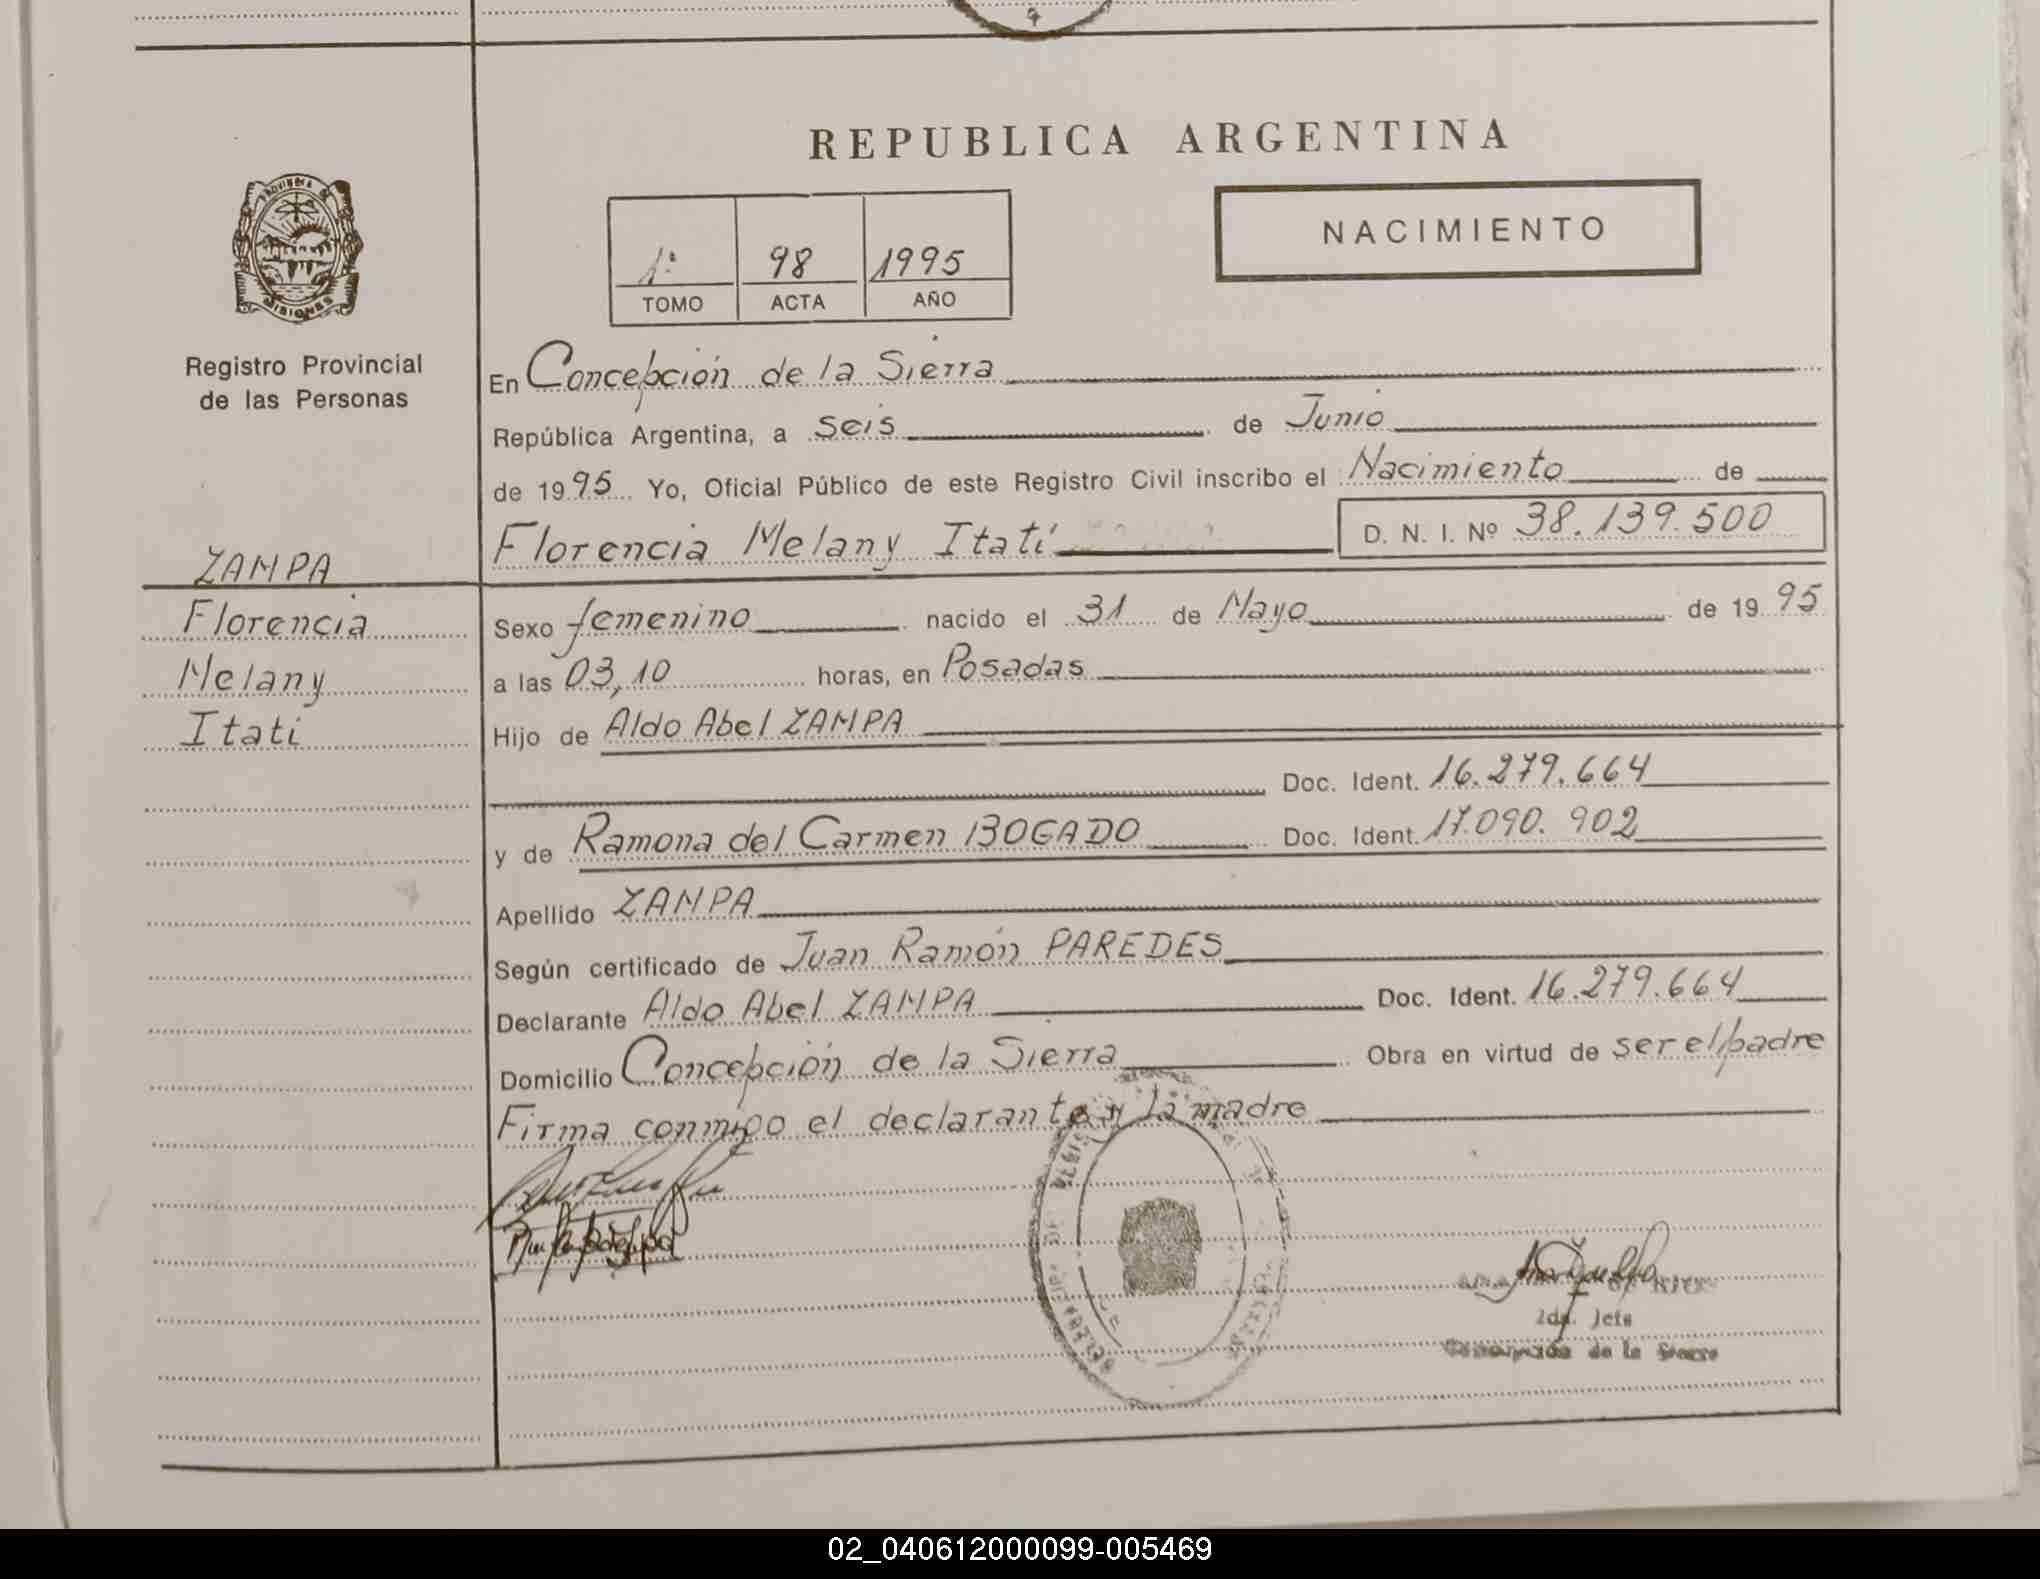 REPUBLICA ARGENTINA
PROVINCIA DE
MISIONES
1º 98 1995
TOMO ACTA AÑO
NACIMIENTO
Registro Provincial
de las Personas
En Concepción de la Sierra
República Argentina, a seis de Junio
de 1995 Yo, Oficial Público de este Registro Civil inscribo el Nacimiento de
Florencia Melany Itatí D. N. I. Nº 38.139.500
ZAMPA
Florencia
Melany
Itatí
Sexo femenino nacido el 31 de Mayo de 1995
a las 03,10 horas, en Posadas
Hijo de Aldo Abel ZAMPA
Doc. Ident. 16.279.664
y de Ramona del Carmen BOGADO Doc. Ident. 17.090.902
Apellido ZAMPA
Según certificado de Juan Ramón PAREDES
Declarante Aldo Abel ZAMPA Doc. Ident. 16.279.664
Domicilio Concepción de la Sierra Obra en virtud de ser el padre
Firma conmigo el declarante y la madre
2da. Jefe
Concepción de la Sierra
02_040612000099-005469